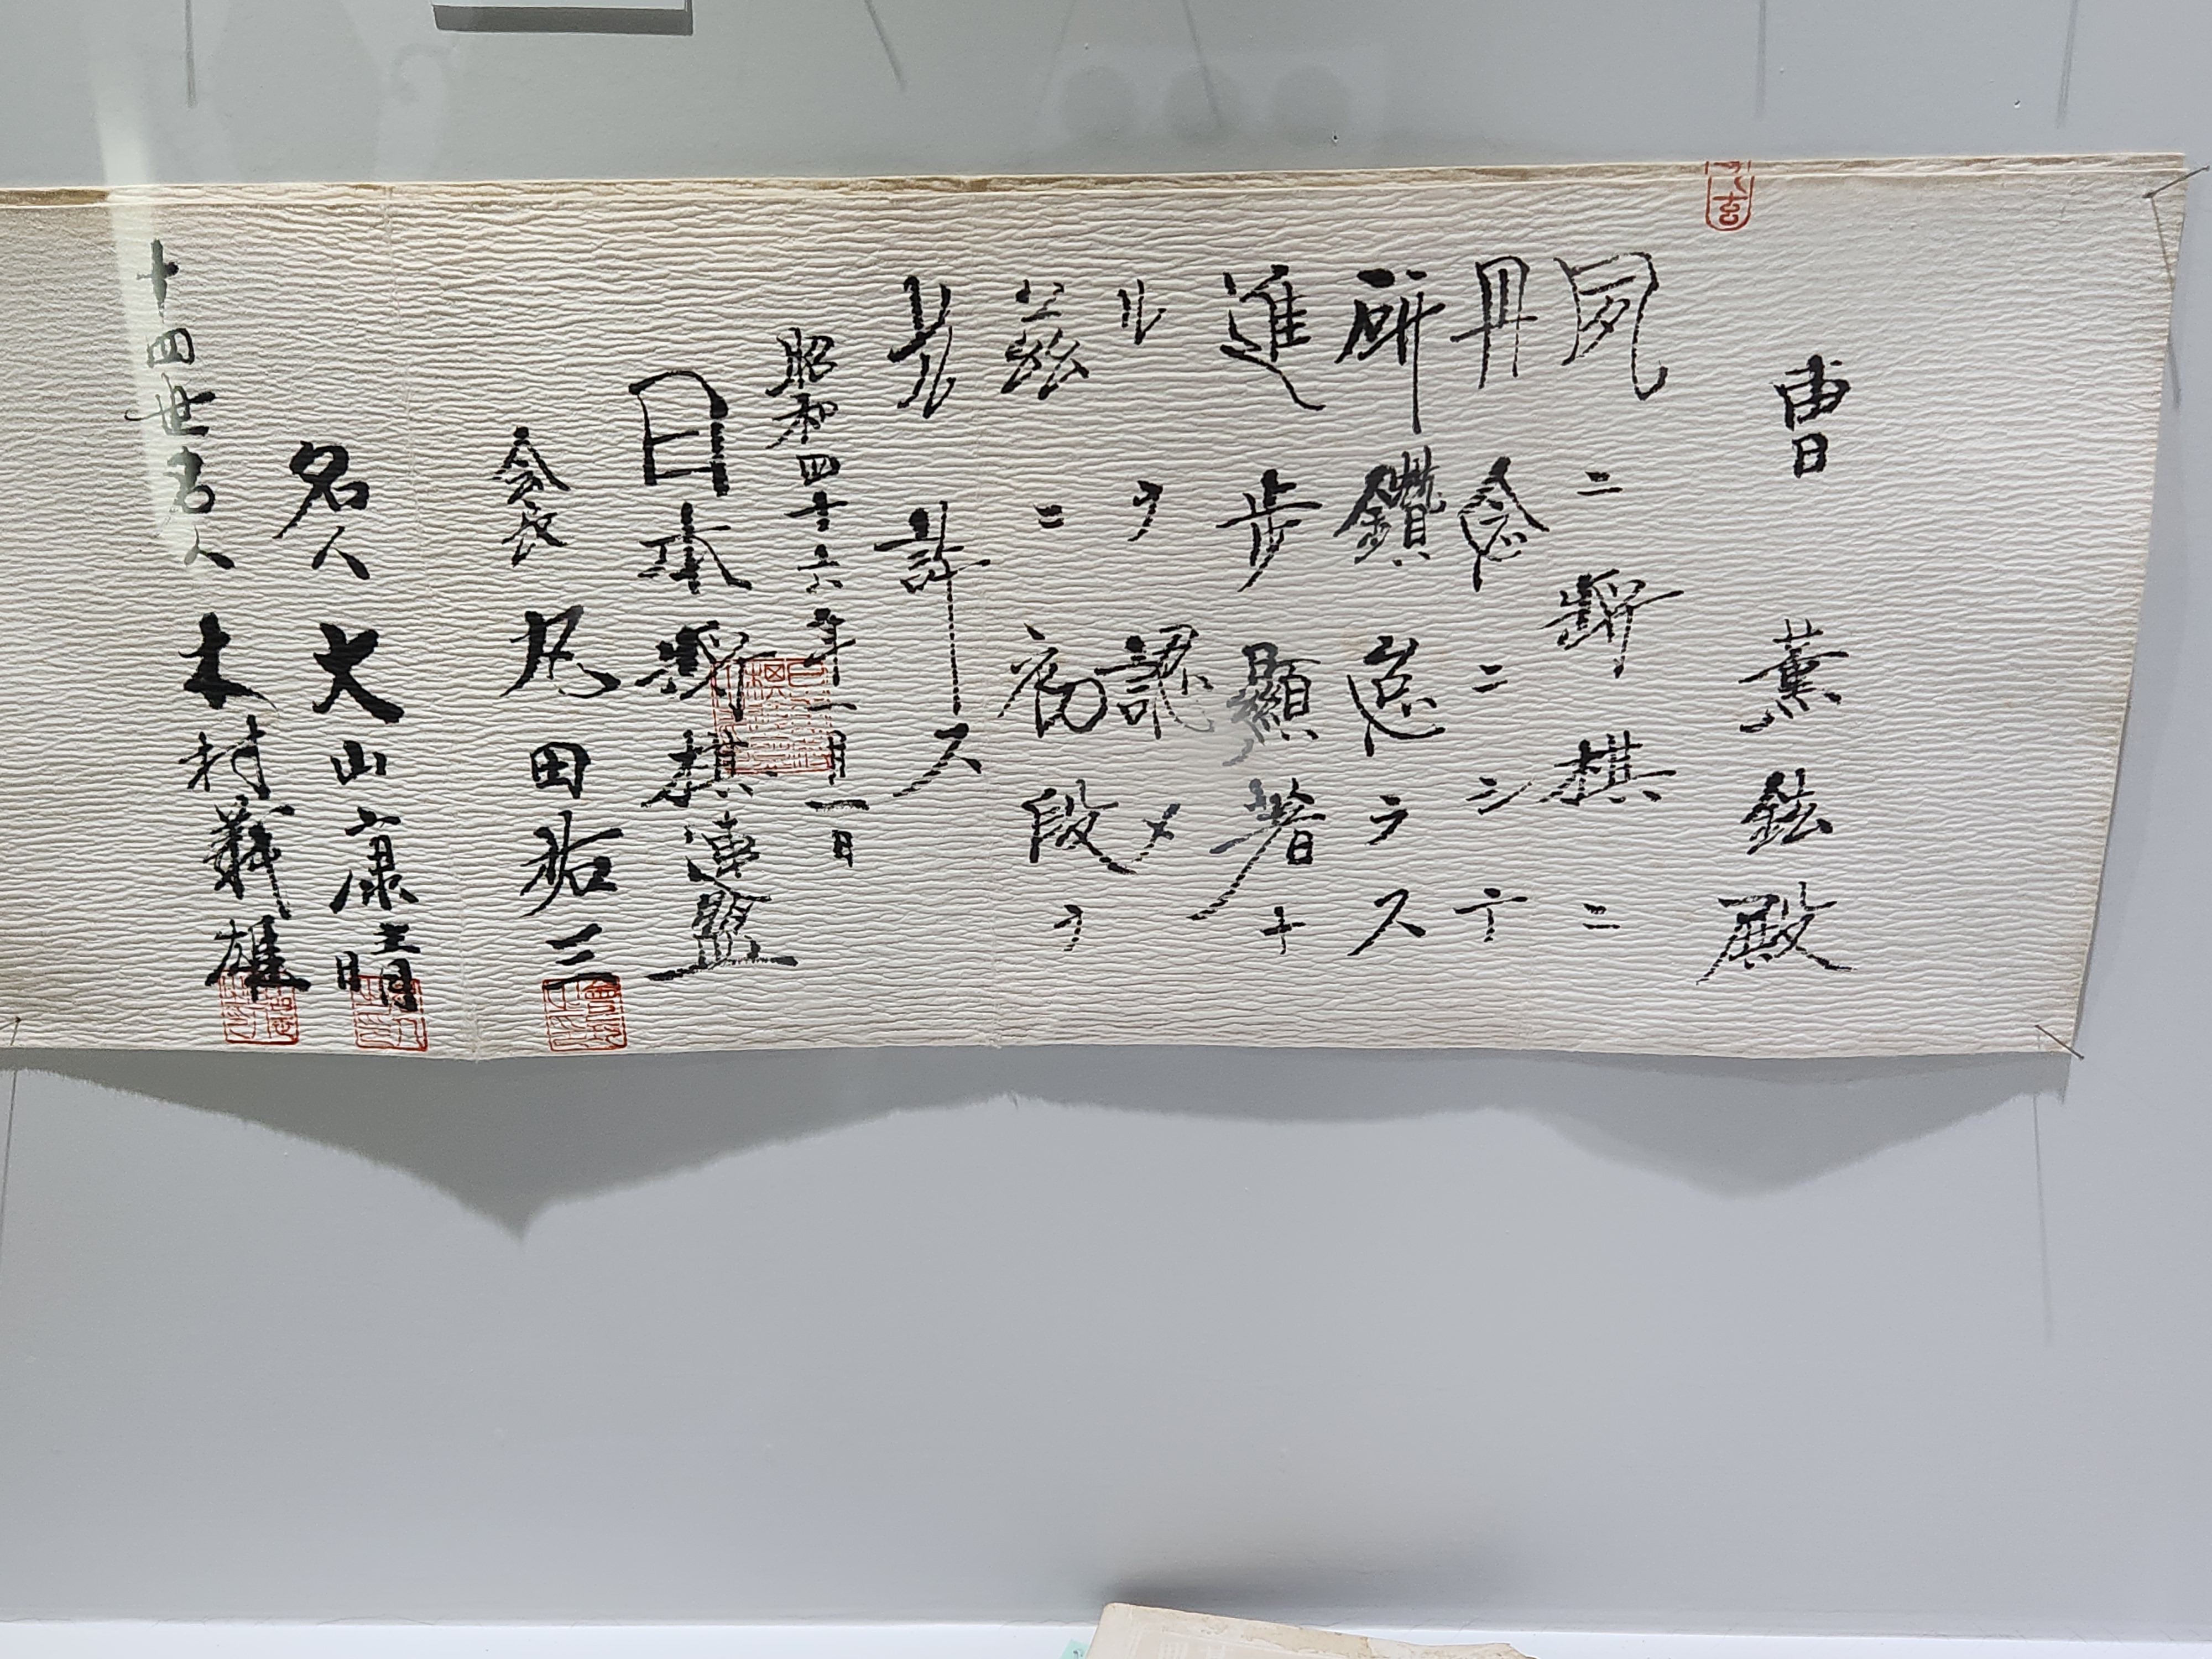 曺 薫鉉殿
夙ニ將棋ニ
丹念ニシテ
研鑽怠ラス
進歩顯著ナ
ルヲ認メ
茲ニ初段ヲ
免許ス
昭和四十六年一月一日
日本將棋連盟
会長 丸田祐三
名人 大山康晴
十四世名人 木村義雄